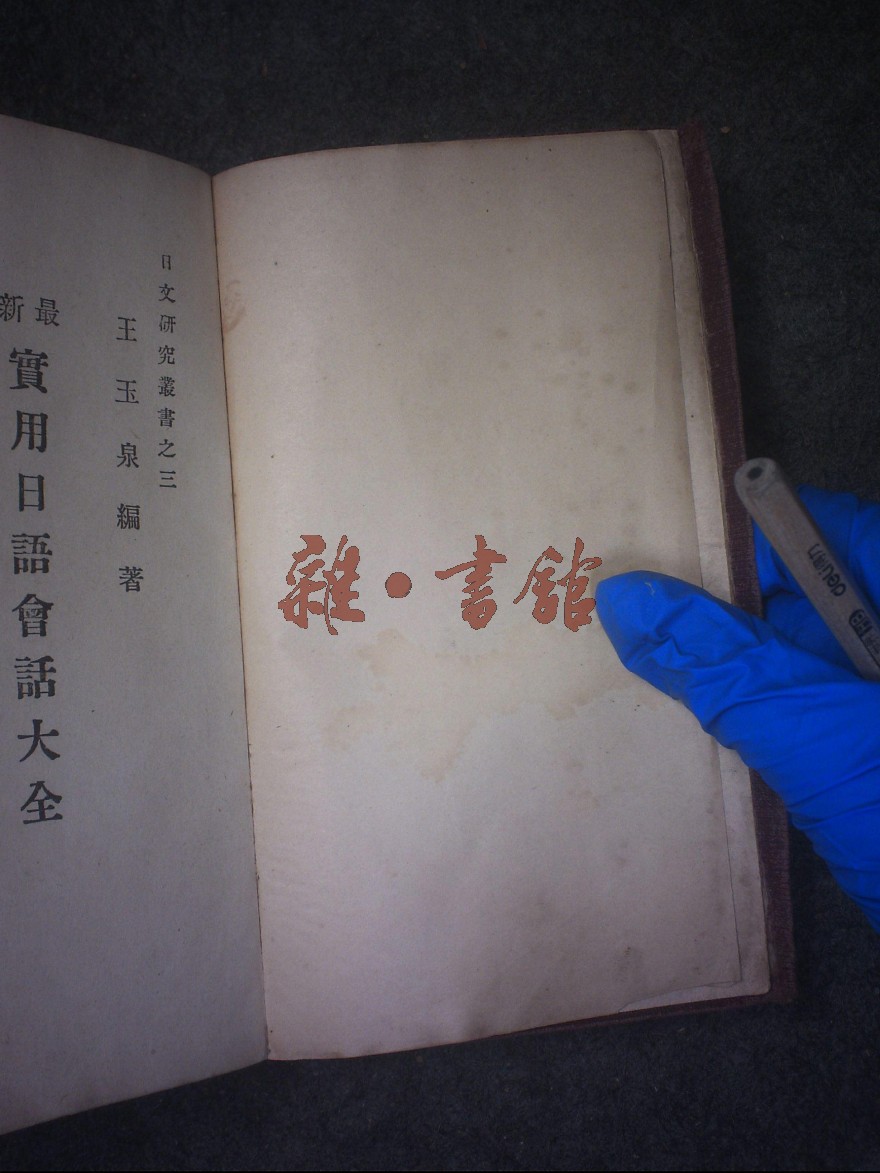 日文研究叢書之三
王玉泉編著
最新
實用日語會話大全
雜·書館
deli